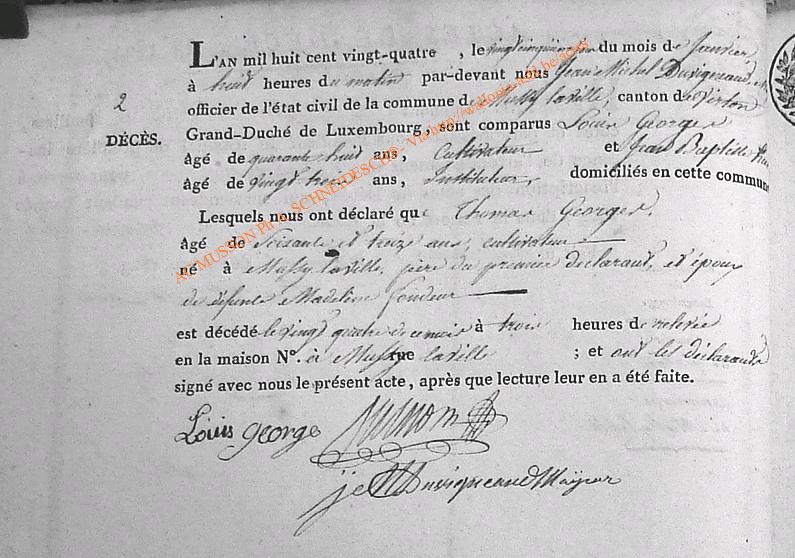 L'AN mil huit cent vingt-quatre , le vingtcinquième du mois de Janvier
à huit heures du matin par-devant nous Jean Michel Duvigneaud
2
officier de l'état civil de la commune de Mussy laville, canton de Virton
DÉCÈS.
Grand-Duché de Luxembourg, sont comparus Louis Georges
âgé de quarante huit ans, Cultivateur et Jean Baptiste
âgé de vingt trois ans, Instituteur, domiciliés en cette commune
Lesquels nous ont déclaré que Thomas Georges,
âgé de Soisante et treize ans, cultivateur
né à Mussy laville, père du premier déclarant, et époux
de défunte Madeleine fondeur
est décédé le vingt quatre de ce mois à trois heures de relevée
en la maison N°. à Mussy rue laville ; et ont les déclarants
signé avec nous le présent acte, après que lecture leur en a été faite.
Louis george
Duvigneaud Mayeur